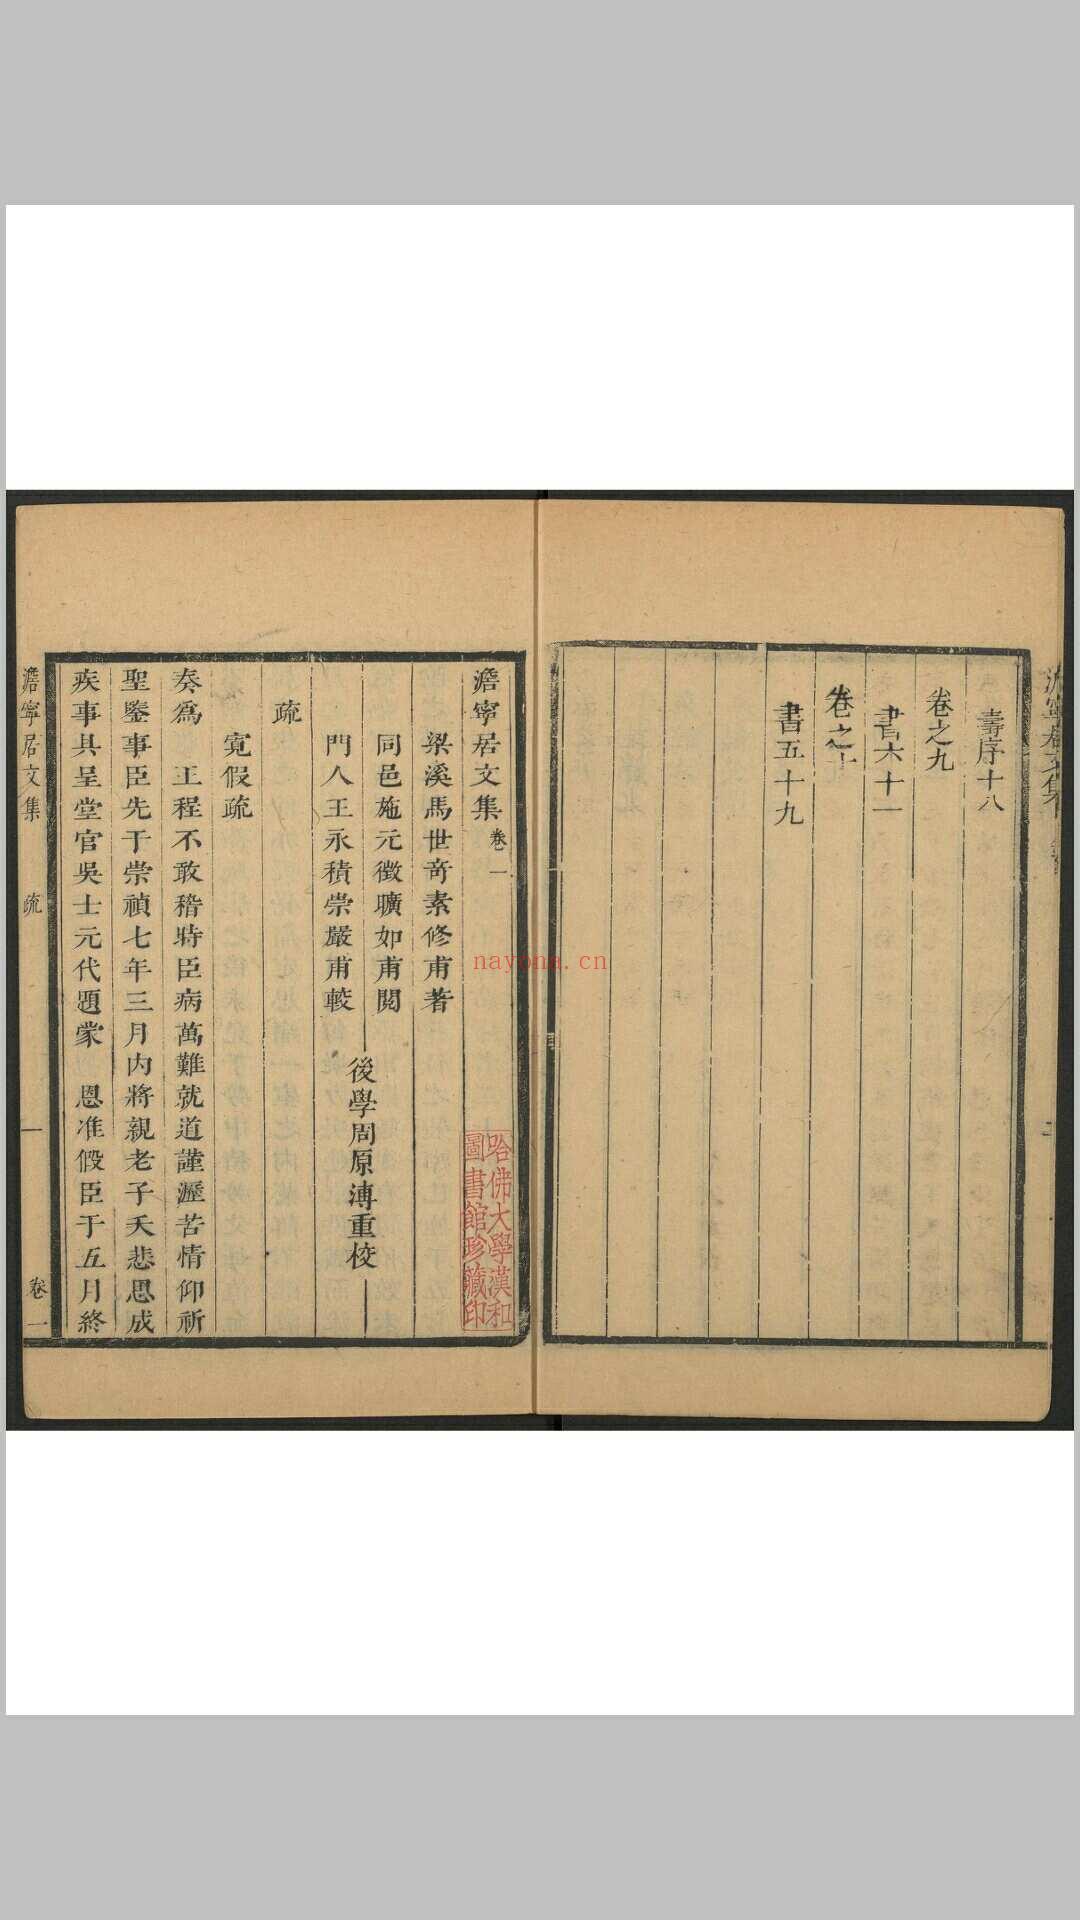 壽序十八
卷之九
書六十一
卷之十
書五十九
澹寧居文集 卷一
梁溪馬世奇素修甫著
同邑施元徵曠如甫閱
門人王永積崇嚴甫較
後學周原溥重校
疏
寬假疏
奏爲 王程不敢稽時臣病萬難就道謹瀝苦情仰祈
聖鑒事臣先于崇禎七年三月内將親老子夭悲思成
疾事具呈堂官吳士元代題蒙 恩准假臣于五月終
澹寧居文集 疏 一 卷一
哈佛大學漢和
圖書館珍藏印
nayona.cn